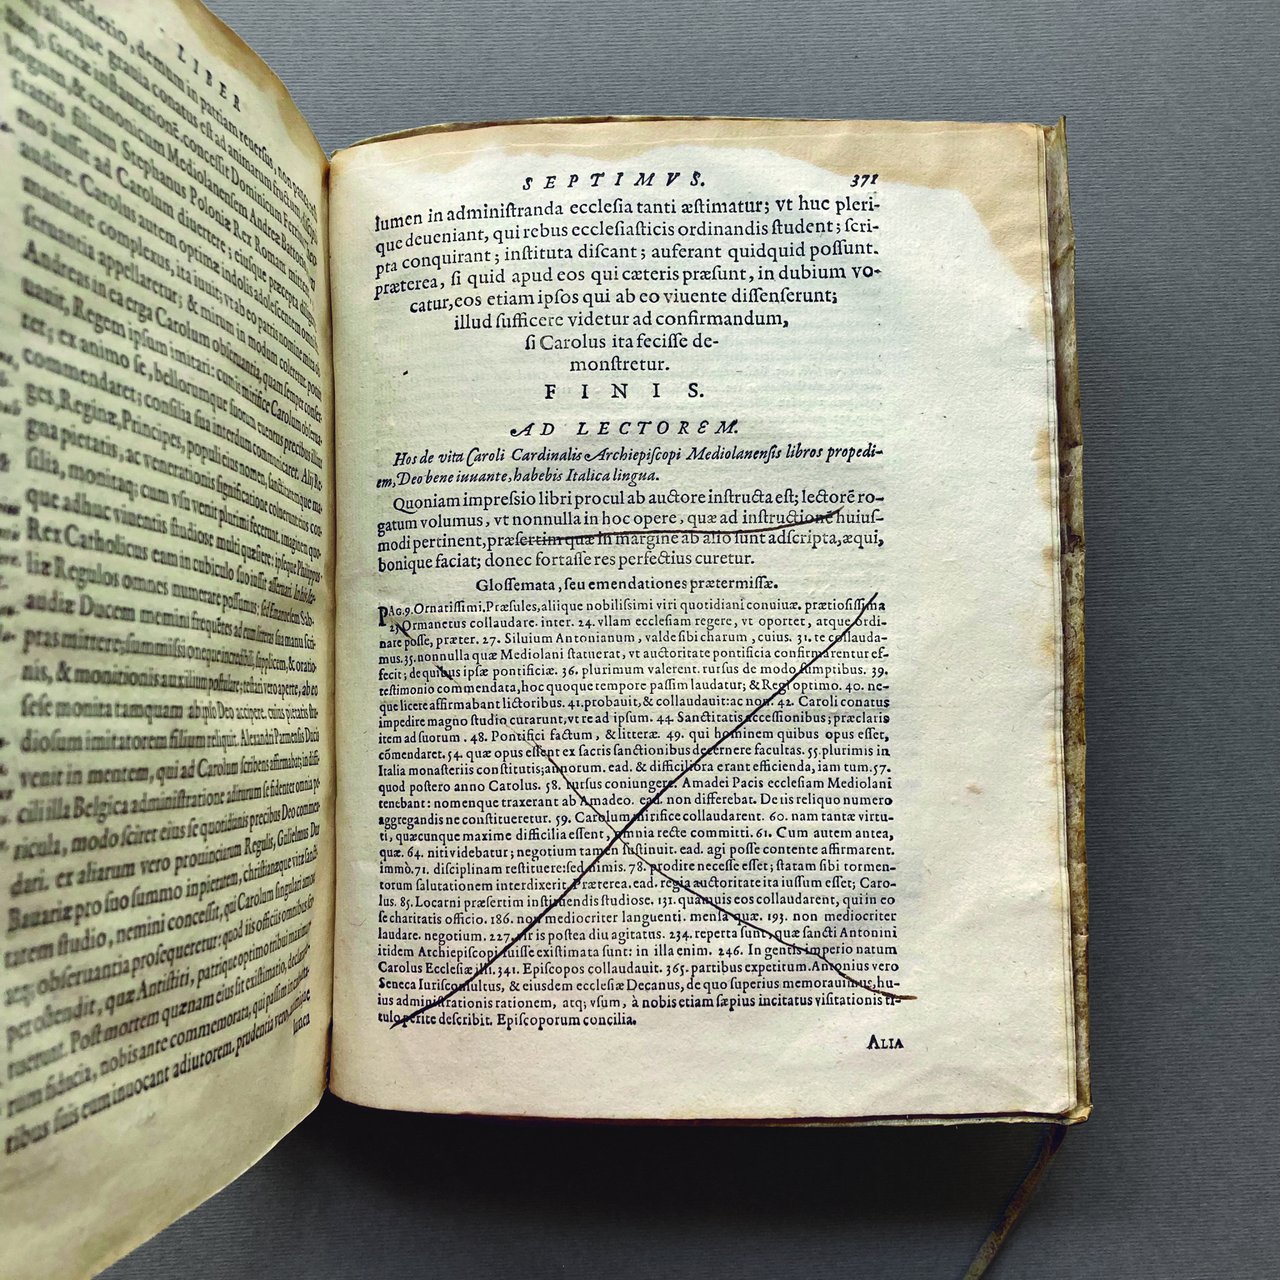 LIBER
demum in patriam reuersus, non
aliaque grauia conatus est ad animarum fructum
sacræ instaurationē. concessit Dominicum Ferrum
& canonicum Mediolanensem Andreæ Battorio,
filium Stephanus Poloniæ Rex Romam mitteret
mo iussit ad Carolum diuertere; eiusque præcepta diligēter
audire. Carolus autem optimæ indolis adolescentem omni hu-
manitate complexus, ita iuuit; vt ab eo patris nomine
seruantia appellaretur; & mirum in modum coleretur. porro
Andreas in ea erga Carolum obseruantia, quam semper
uauit, Regem ipsum imitari: cum is mirifice Carolum obserua-
ret; ex animo se, bellorumque suorum euentus precibus illius
commendaret; consilia sua interdum communicaret. Alij Re-
ges, Reginæ, Principes, populi eius nomen, sanctitatemque ma-
gna pietatis, ac venerationis significatione
silia, monitaq; cum vsu venit plurimi fecerunt. imaginem quo-
que adhuc viuentis studiose multi quæsiere: ipseque Philippus
Rex Catholicus eam in cubiculo suo iussit asseruari.
liæ Regulos omnes numerare possumus: sed Emanuelem Sab-
audiæ Ducem memini frequētes ad eum litteras sua manu scri-
ptas mittere; summissi oneque incredibili, supplicem, & oratio-
nis, & monitionis auxilium postulare; testari vero aperte, ab eo
sese monita tamquam ab ipso Deo accipere. cuius pietatis stu-
diosum imitatorem filium reliquit. Alexandri Parmensis Ducis
venit in mentem, qui ad Carolum scribens affirmabat; in diffi-
cili illa Belgica administratione adirurum se fidenter omnia pe-
ricula, modo sciret eius se quotidianis precibus Deo commen-
dari. ex aliarum vero prouinciarum Regulis, Gulielmus Dux
Bauariæ pro suo summo in pietatem, christianæque vitæ sancti-
tatem studio, nemini concessit, qui Carolum singulari amore
atq; obseruantia prosequeretur: quod iis officiis omnibus
per ostendit, quæ Antistiti, patrique optimo tribui maxima
tuerunt. Post mortem quænam eius sit existimatio,
rum fiducia, nobis ante commemorata, qui passim in
tibus suis eum inuocant adiutorem. prudentia vero,
lumen
SEPTIMVS. 371
lumen in administranda ecclesia tanti æstimatur; vt huc pleri-
que deueniant, qui rebus ecclesiasticis ordinandis student; scri-
pta conquirant; instituta discant; auferant quidquid possunt.
præterea, si quid apud eos qui cæteris præsunt, in dubium vo-
catur, eos etiam ipsos qui ab eo viuente dissenserunt;
illud sufficere videtur ad confirmandum,
si Carolus ita fecisse de-
monstretur.
FINIS.
AD LECTOREM.
Hos de vita Caroli Cardinalis Archiepiscopi Mediolanensis libros propedi-
em, Deo bene iuuante, habebis Italica lingua.
Quoniam impressio libri procul ab auctore instructa est; lectorē ro-
gatum volumus, vt nonnulla in hoc opere, quæ ad instructionē huius-
modi pertinent, præsertim quæ in margine ab alio sunt adscripta, æqui,
bonique faciat; donec fortasse res perfectius curetur.
Glossemata, seu emendationes prætermissæ.
PAG. 9. Ornatissimi. Præsules, aliique nobilissimi viri quotidiani conuiuæ. prætiosissima
23. Ormanetus collaudare. inter. 24. vllam ecclesiam regere, vt oportet, atque ordi-
nare posse, præter. 27. Siluium Antonianum, valde sibi charum, cuius. 31. te collauda-
mus. 35. nonnulla quæ Mediolani statuerat, vt auctoritate pontificia confirmarentur ef-
fecit; de quibus ipsæ pontificiæ. 36. plurimum valerent. rursus de modo sumptibus. 39.
testimonio commendata, hoc quoque tempore passim laudatur; & Regi optimo. 40. ne-
que licere affirmabant lictoribus. 41. probauit, & collaudauit: ac non. 42. Caroli conatus
impedire magno studio curarunt, vt re ad ipsum. 44. Sanctitatis accessionibus; præclaris
item ad suorum. 48. Pontifici factum, & litteræ. 49. qui hominem quibus opus esset,
cōmendaret. 54. quæ opus essent ex sacris sanctionibus decernere facultas. 55. plurimis in
Italia monasteriis constitutis; annorum. ead. & difficiliora erant efficienda, iam tum. 57.
quod postero anno Carolus. 58. rursus coniungere. Amadei Pacis ecclesiam Mediolani
tenebant: nomenque traxerant ab Amadeo. ead. non differebat. De iis reliquo numero
aggregandis ne constitueretur. 59. Carolum mirifice collaudarent. 60. nam tantæ virtu-
ti, quæcunque maxime difficilia essent, omnia recte committi. 61. Cum autem antea,
quæ. 64. niti videbatur; negotium tamen sustinuit. ead. agi posse contente affirmarent.
immò. 71. disciplinam restituere: sed nimis. 78. prodite necesse esset; statam sibi tormen-
torum salutationem interdixerit. Præterea. ead. regia auctoritate ita iussum esset; Caro-
lus. 85. Locarni præsertim instituendis studiose. 131. quamuis eos collaudarent, qui in eo
se charitatis officio. 186. non mediocriter languenti. mensa quæ. 193. non mediocriter
laudare. negotium. 227. vir is postea diu agitatus. 234. reperta sunt, quæ sancti Antonini
itidem Archiepiscopi fuisse existimata sunt: in illa enim. 246. In gentis imperio natum
Carolus Ecclesiæ illi. 341. Episcopos collaudauit. 365. partibus expetitum. Antonius vero
Seneca Iurisconsultus, & eiusdem ecclesiæ Decanus, de quo superius memorauimus, hu-
ius administrationis rationem, atq; vsum, à nobis etiam sæpius incitatus visitationis ti-
tulo perite describit. Episcoporum concilia.
ALIA